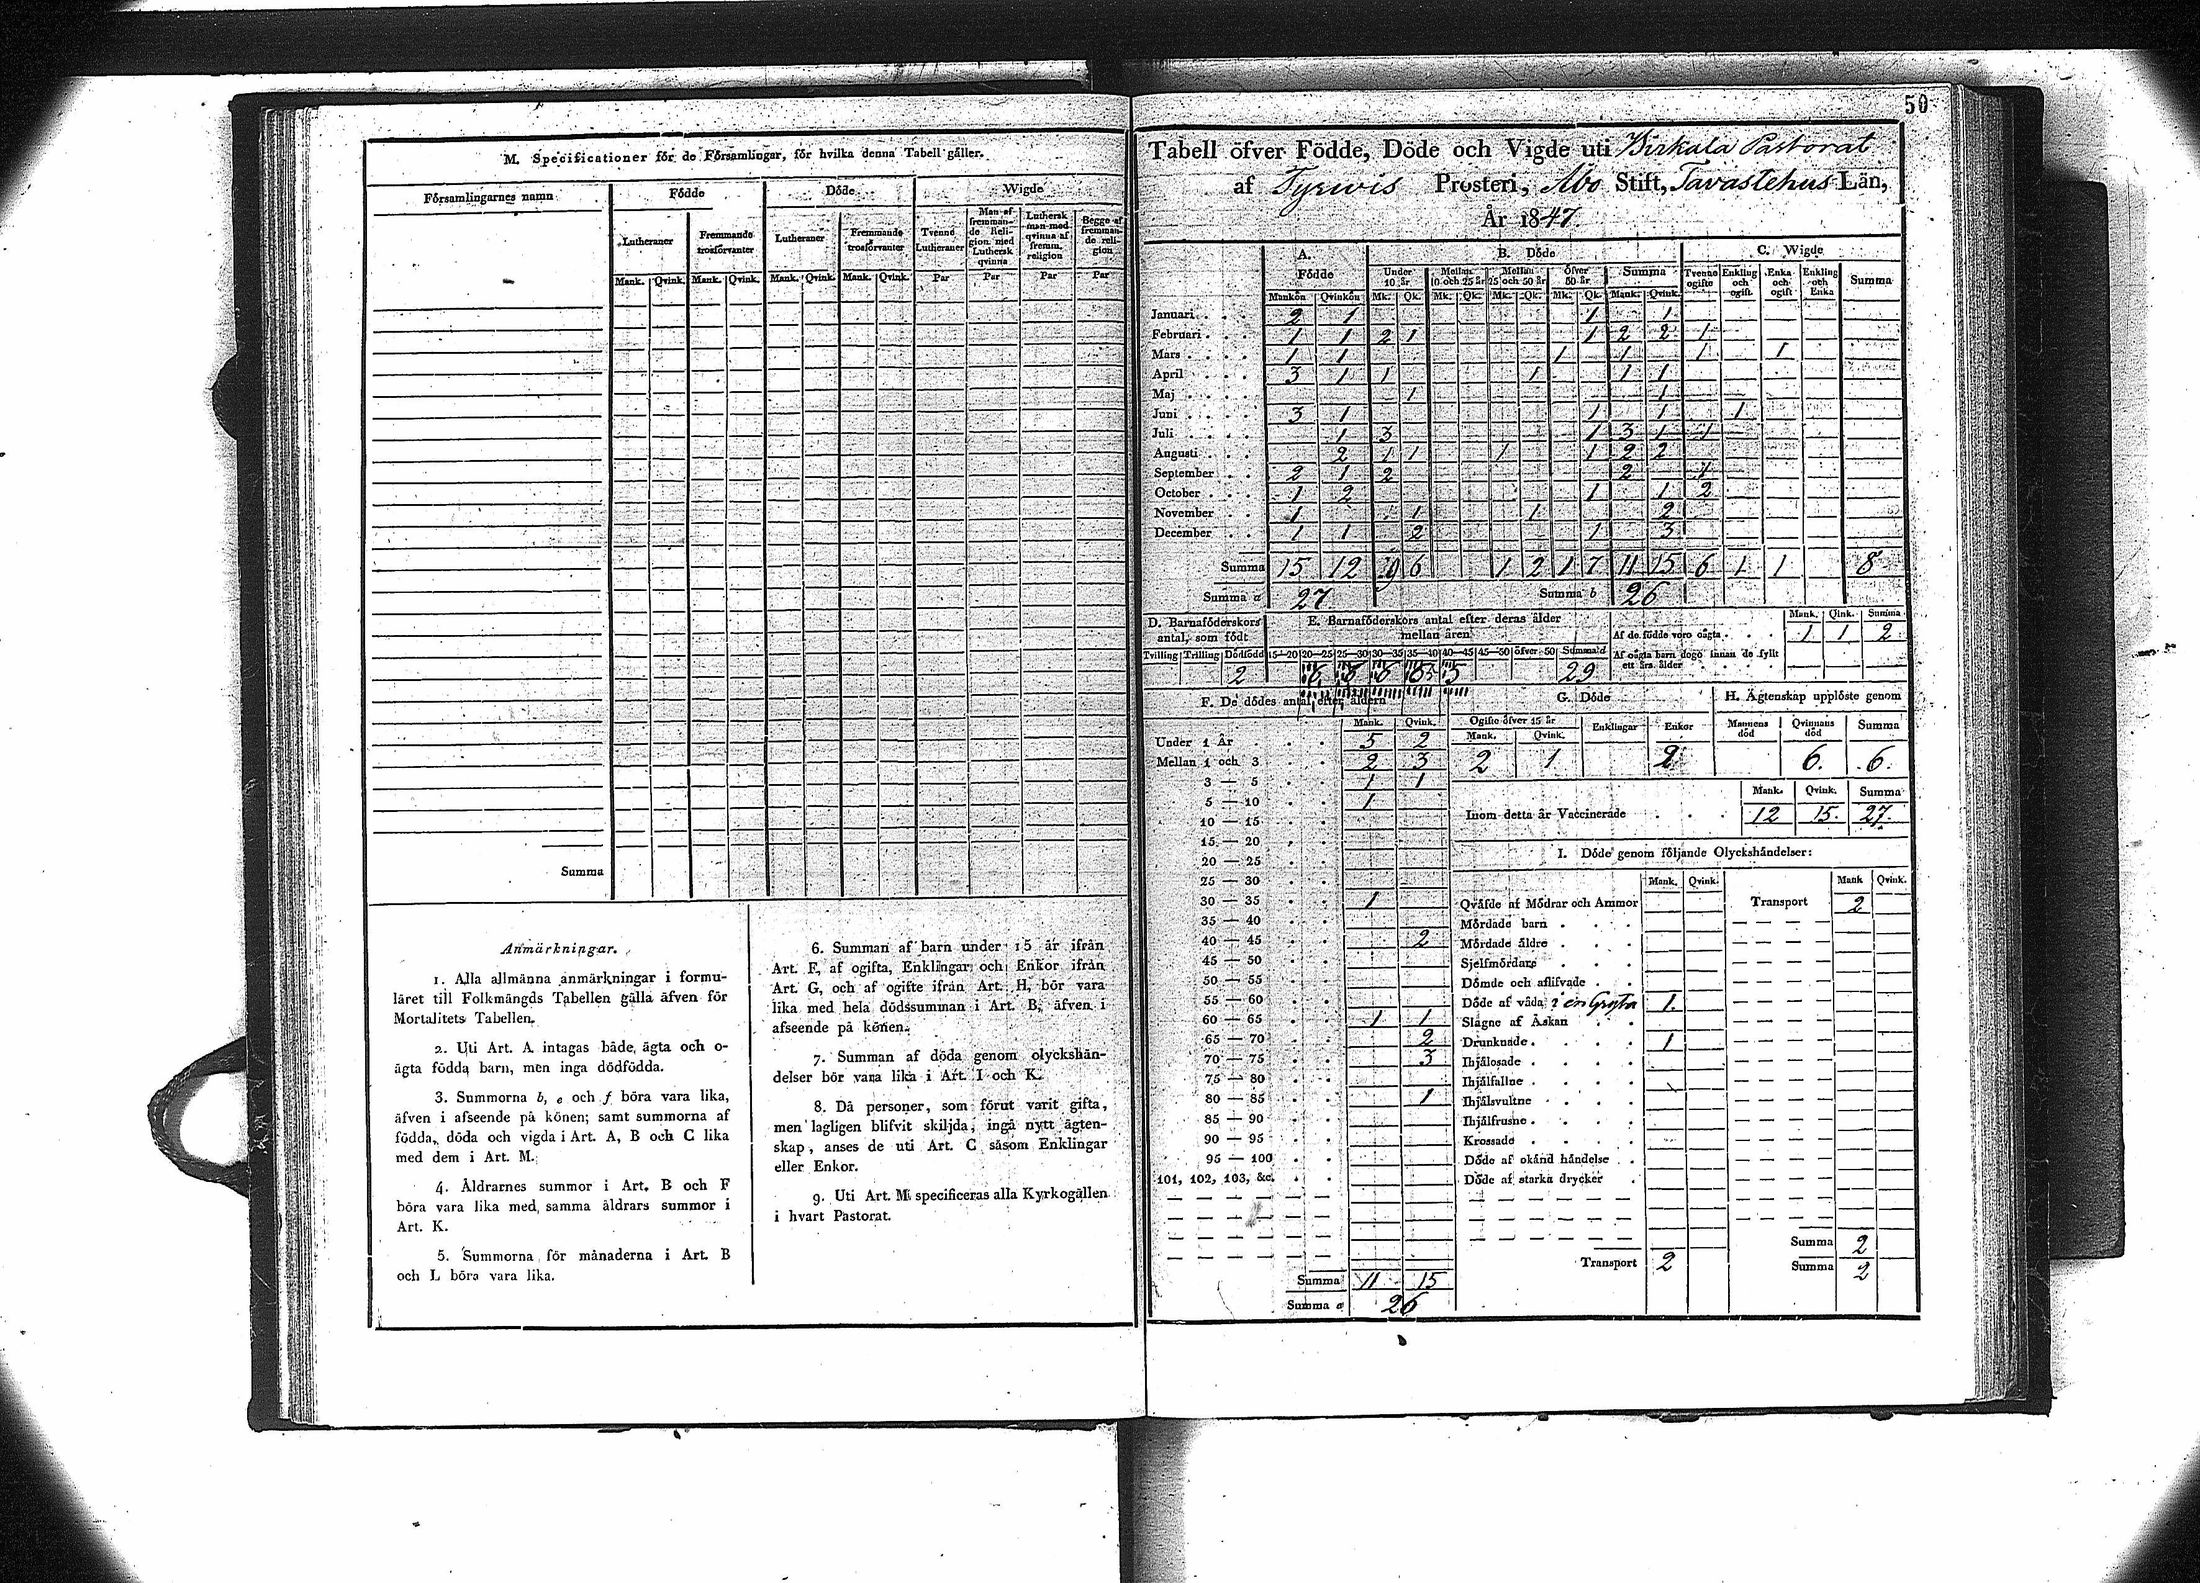 M. Specificationer för de Församlingar, för hvilka denna Tabell gäller.
Församlingarnes namn Födde Döde Wigde
Lutheraner Fremmande trosförvanter Lutheraner Fremmande trosförvanter Tvenne Lutheraner Man af fremmande Religion med Luthersk qvinna Luthersk man med qvinna af fremm. religion Begge af fremmande religion
Mank. Qvink. Mank. Qvink. Mank. Qvink. Mank. Qvink. Par Par Par Par
Summa
Anmärkningar.
1. Alla allmänna anmärkningar i formu-
läret till Folkmängds Tabellen gälla äfven för
Mortalitets Tabellen.
2. Uti Art. A intagas både ägta och o-
ägta födda barn, men inga dödfödda.
3. Summorna b, e och f böra vara lika,
äfven i afseende på könen; samt summorna af
födda, döda och vigda i Art. A, B och C lika
med dem i Art. M.
4. Åldrarnes summor i Art. B och F
böra vara lika med samma åldrars summor i
Art. K.
5. Summorna för månaderna i Art. B
och L böra vara lika.
6. Summan af barn under 15 år ifrån
Art. F, af ogifta, Enklingar och Enkor ifrån
Art. G, och af ogifte ifrån Art. H, bör vara
lika med hela dödssumman i Art. B, äfven i
afseende på könen.
7. Summan af döda genom olyckshän-
delser bör vara lika i Art. I och K.
8. Då personer, som förut varit gifta,
men lagligen blifvit skiljda, ingå nytt ägten-
skap, anses de uti Art. C såsom Enklingar
eller Enkor.
9. Uti Art. M specificeras alla Kyrkogällen
i hvart Pastorat.
50
Tabell öfver Födde, Döde och Vigde uti Birkala Pastorat
af Tyrwis Prosteri, Åbo Stift, Tavastehus Län,
År 1847.
A. Födde B. Döde C. Wigde
Under 10 år Mellan 10 och 25 år Mellan 25 och 50 år Öfver 50 år Summa Tvenne ogifte Enkling och ogift Enka och ogift Enkling och Enka Summa
Mankön Qvinkön Mk. Qk. Mk. Qk. Mk. Qk. Mk. Qk. Mank. Qvink.
Januari 2 1 1 1
Februari 1 1 2 1 1 2 2 1
Mars 1 1 1 1 1 1
April 3 1 1 1 1 1
Maj 1 1
Juni 3 1 1 1 1
Juli 1 3 1 3 1 1
Augusti 2 1 1 1 1 2 2
September 2 1 2 2 1
October 1 2 1 1 2
November 1 1 1 2
December 1 1 2 1 3
Summa 15 12 9 6 1 2 1 7 11 15 6 1 1 8
Summa a 27 Summa b 26
D. Barnaföderskors antal, som födt
Tvilling Trilling Dödfödd
2
E. Barnaföderskors antal efter deras ålder mellan åren
15—20 20—25 25—30 30—35 35—40 40—45 45—50 öfver 50 Summa d
29
Mank. Qink. Summa
Af de födde voro oägta 1 1 2
Af oägta barn dogo innan de fyllt ett års ålder
F. De dödes antal efter åldern
Mank. Qvink.
Under 1 År 5 2
Mellan 1 och 3 2 3
3 — 5 1 1
5 — 10 1
10 — 15
15 — 20
20 — 25
25 — 30
30 — 35 1
35 — 40
40 — 45 2
45 — 50
50 — 55
55 — 60
60 — 65 1 1
65 — 70 2
70 — 75 3
75 — 80
80 — 85 1
85 — 90
90 — 95
95 — 100
101, 102, 103, &c.
Summa 11 15
Summa e 26
G. Döde
Ogifte öfver 15 år Enklingar Enkor
Mank. Qvink.
2 1 2
H. Ägtenskap upplöste genom
Mannens död Qvinnans död Summa
6. 6.
Mank. Qvink. Summa
Inom detta år Vaccinerade 12 15. 27.
I. Döde genom följande Olyckshändelser:
Mank. Qvink. Mank Qvink.
Qväfde af Mödrar och Ammor Transport 2
Mördade barn
Mördade äldre
Sjelfmördare
Dömde och aflifvade
Döde af våda i en 1.
Slagne af Åskan
Drunknade 1
Ihjälosade
Ihjälfallne
Ihjälsvultne
Ihjälfrusne
Krossade
Döde af okänd händelse
Döde af starka drycker
Summa 2
Transport 2 Summa 2